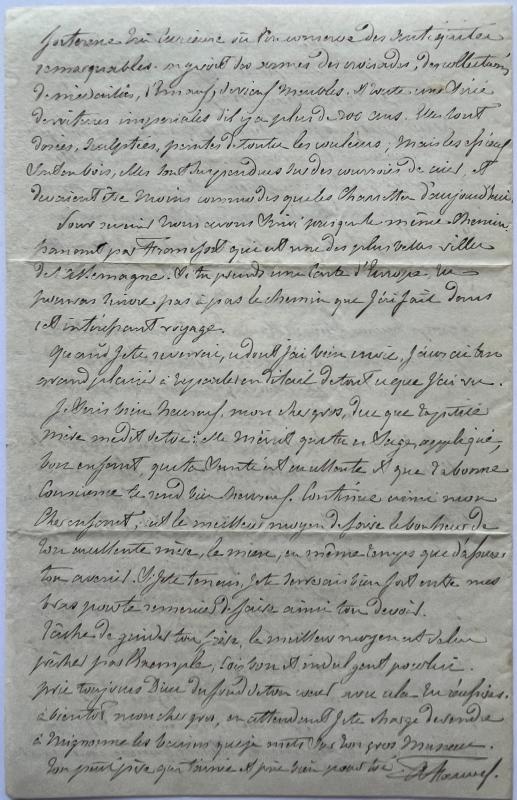 forteresse très curieuse où l'on conserve des antiquités
remarquables. on y voit des armes des croisades, des collections
de médailles, d'émaux, de vieux meubles. et toute une série
de voitures impériales dit y a plus de 200 ans. Elles sont
dorées, sculptées, peintes de toutes les couleurs; mais les essieux
sont en bois, elles sont suspendues sur des courroies de cuir, et
devaient être moins commodes que les charrettes d'aujourd'hui.
Pour revenir nous avons suivi presque le même chemin,
passant par Francfort qui est une des plus belles villes
de l'Allemagne. Si tu prends une Carte d'Europe, tu
pourras suivre pas à pas le chemin que j'ai fait dans
cet intéressant voyage.
Quand je te reverrai, ce dont j'ai bien envie, j'aurai un
grand plaisir à te parler en détail de tout ce que j'ai vu.
Je suis bien heureux, mon cher gros, de ce que ta petite
mère me dit de toi: elle m'écrit que tu es sage, appliqué,
bon enfant, que ta santé est excellente et que ta bonne
conscience te rend bien heureux. Continue ainsi mon
cher enfant; c'est le meilleur moyen de faire le bonheur de
ton excellente mère, le mien, en même temps que d'assurer
ton avenir. Si je te tenais, je te serrerais bien fort entre mes
bras pour te remercier de faire ainsi ton devoir.
Tâche de guider ton frère, le meilleur moyen est de lui
prêcher par l'exemple, sois bon et indulgent pour lui.
prie toujours Dieu du fond de ton cœur avec cela tu réussiras.
à bientôt mon cher gros, en attendant je te charge de rendre
à Mignonne les baisers que je mets sur ton gros museau.
Ton petit père qui t'aime et prie bien pour toi.